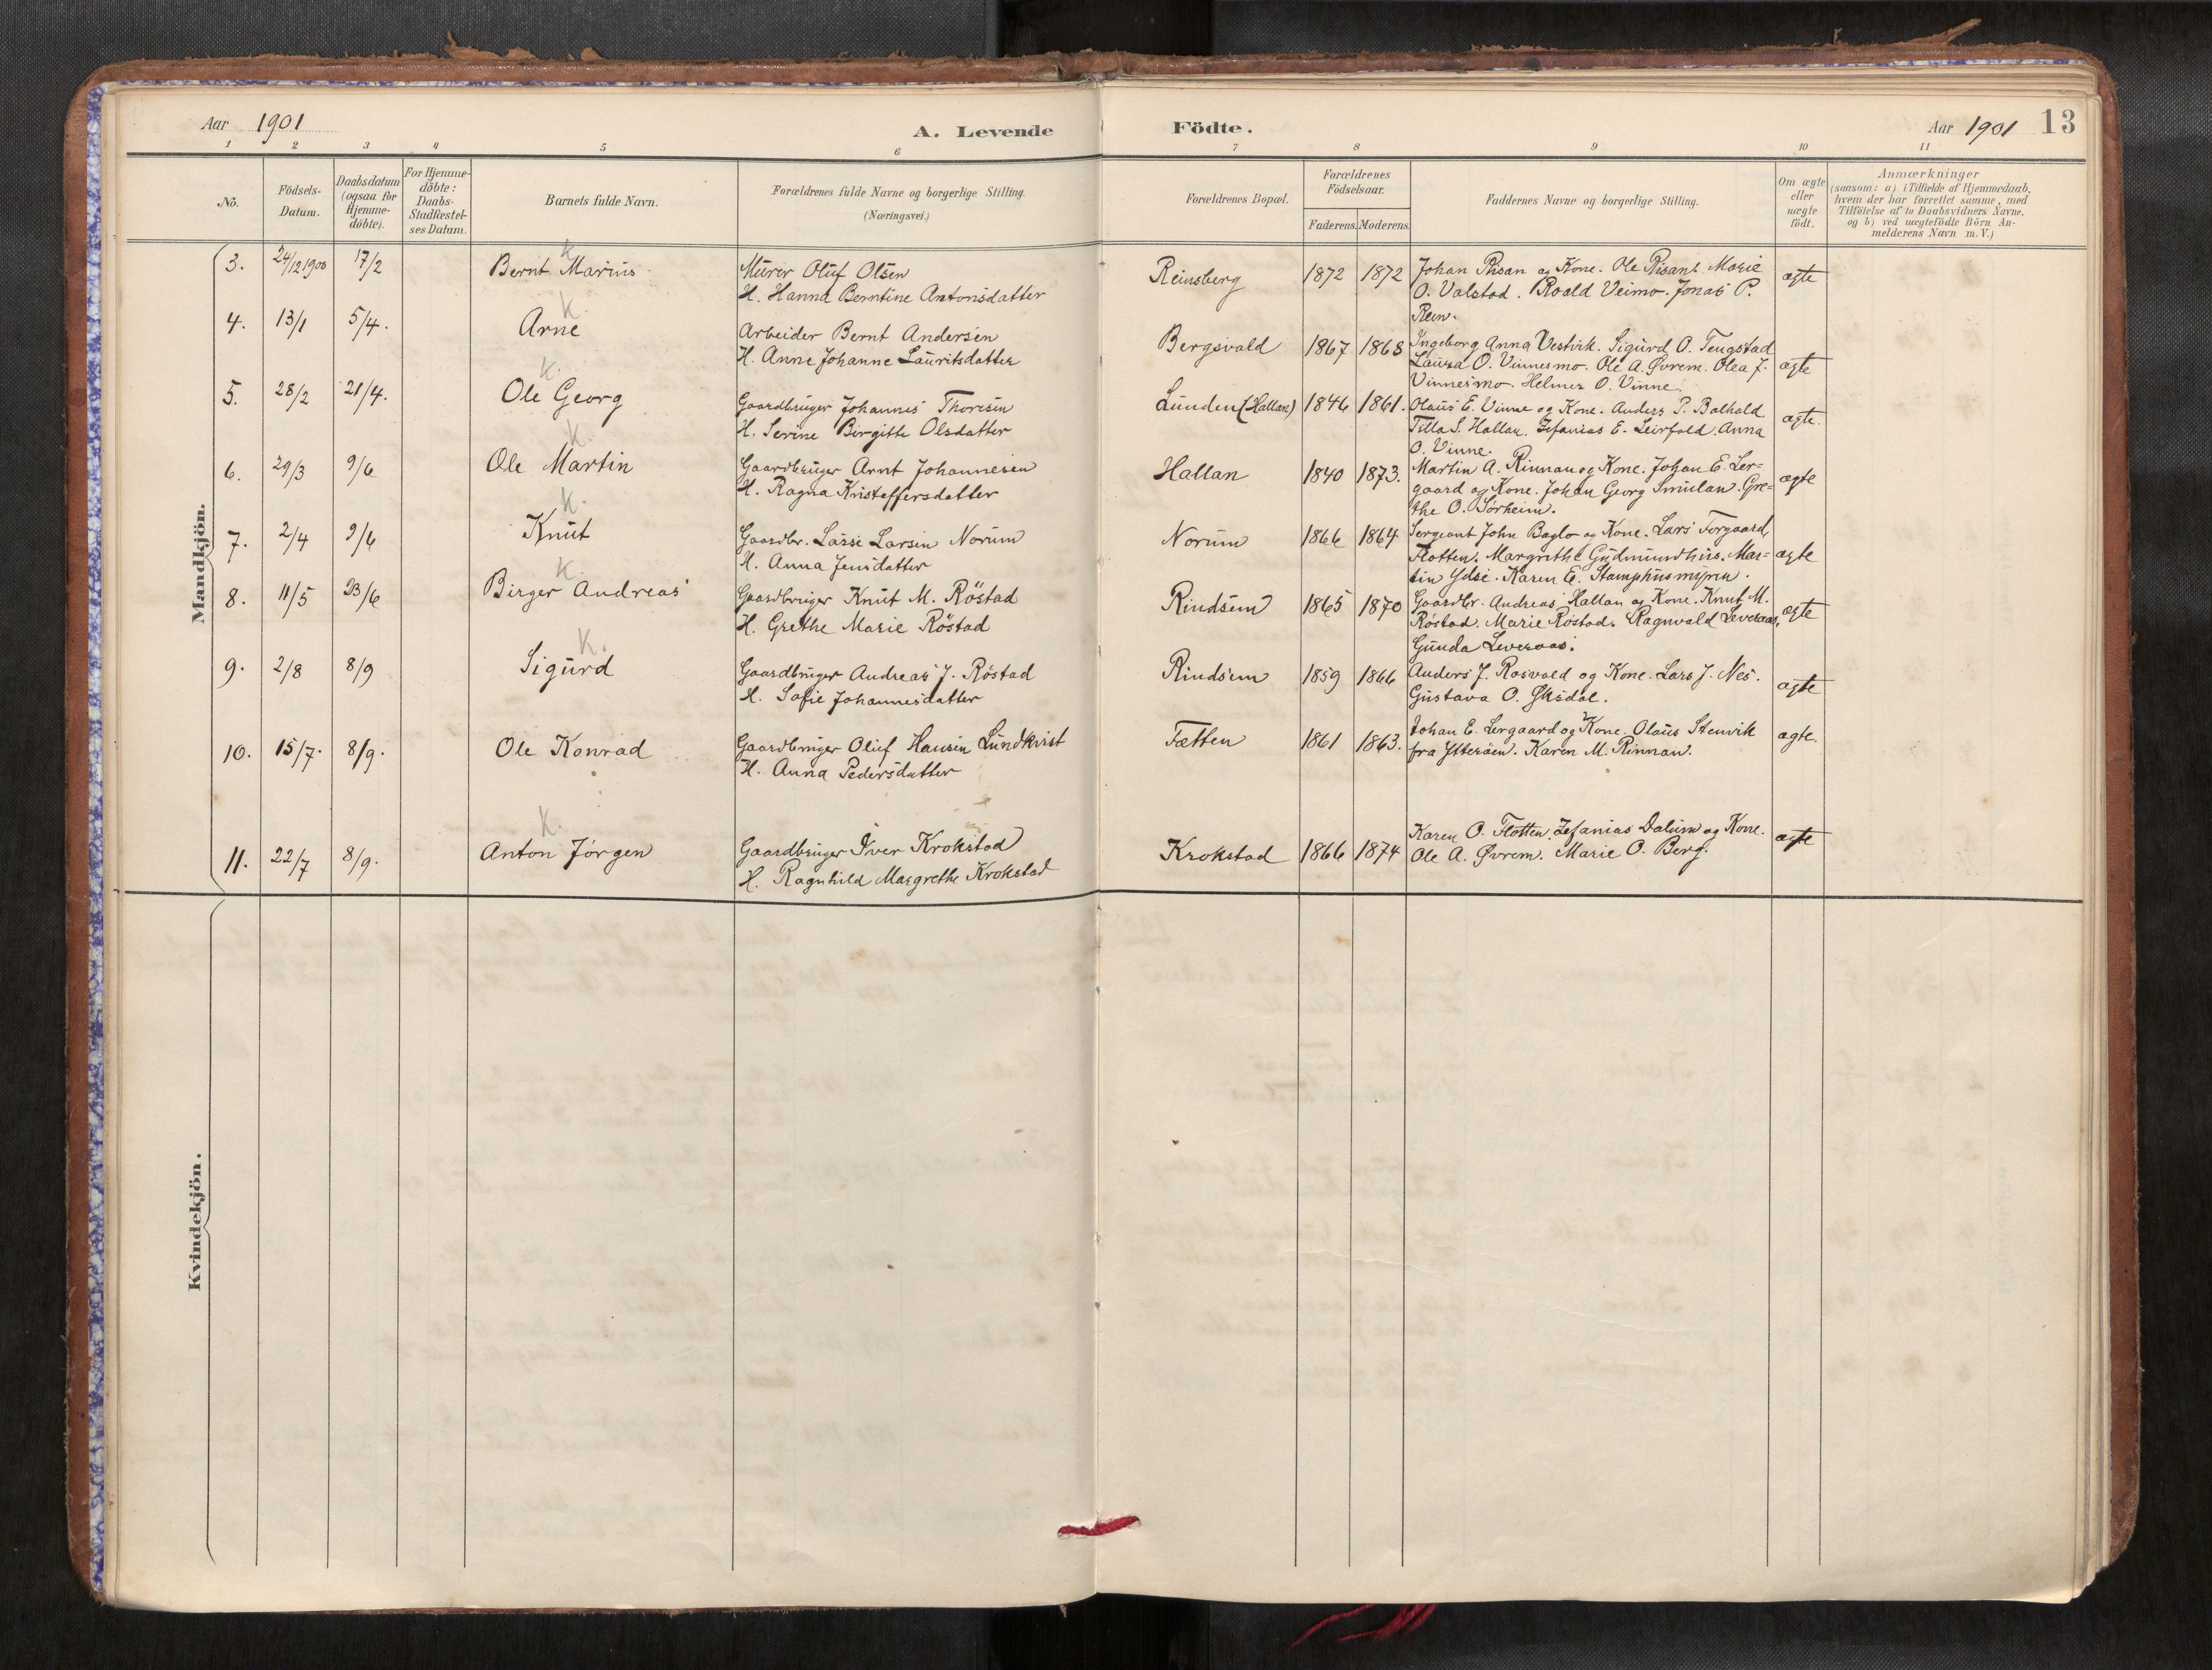 Aar 1901
A. Levende Födte.
Aar 1901 13
1 2 3 4 5 6 7 8 9 10 11
No.
Födsels-Datum.
Daabsdatum (ogsaa for Hjemme-döbte).
For Hjemme-döbte: Daabs-Stadfæstel-ses Datum.
Barnets fulde Navn.
Forældrenes fulde Navne og borgerlige Stilling.
(Næringsvei.)
Forældrenes Bopæl.
Forældrenes Födselsaar.
Faderens. Moderens.
Faddernes Navne og borgerlige Stilling.
Om ægte eller uægte födt.
Anmærkninger
(saasom: a) i Tilfælde af Hjemmedaab,
hvem der har forrettet samme, med
Tilföielse af to Daabsvidners Navne.
og b) ved uægtefödte Börn An-
melderens Navn m. V.)
Mandkjön.
K
3. 24/12 1900 17/2 Bernt Marius Murer Oluf Olsen Reinsberg 1872 1872 Johan Risan og Kone. Ole Risan. Marie ægte
H. Hanna Berntine Antonsdatter O. Valstad. Roald Veimo. Jonas P.
Rein.
K
4. 13/1 5/4. Arne Arbeider Bernt Andersen Bergsvald 1867 1868 Ingeborg Anna Vestvik. Sigurd O. Tengstad ægte
H. Anne Johanne Lauritsdatter Laura O. Vinnesmo. Ole A. Øvrem. Olea J.
Vinnesmo. Helmer O. Vinne.
K.
5. 28/2 21/4. Ole Georg Gaardbruger Johannes Thoresen Lunden (Hallan) 1846 1861. Olaus E. Vinne og Kone. Anders P. Balhald ægte.
H. Serine Birgitte Olsdatter Tilla S. Hallan. Zefanias E. Leirfald. Anna
O. Vinne.
K.
6. 29/3 9/6 Ole Martin Gaardbruger Arnt Johannesen Hallan 1840 1873. Martin A. Rinnan og Kone. Johan E. Ler= ægte
H. Ragna Kristoffersdatter gaard og Kone. Johan Georg Smulan. Gre=
the O. Sørheim.
K.
7. 2/4 9/6 Knut Gaardbr. Lasse Larsen Norum Norum 1866 1864 Sergeant John Baglo og Kone. Lars Torgaard, ægte
H. Anna Jensdatter Flotten. Margrethe Gudmundhus. Mar=
tin Ydse. Karen E. Stamphusmyren.
K.
8. 11/5 23/6 Birger Andreas Gaardbruger Knut M. Röstad Rindsem 1865 1870 Gaardbr. Andreas Hallan og Kone. Knut M. ægte
H. Grethe Marie Röstad Röstad. Marie Röstad. Ragnvald Leveraas,
Gunda Leveraas.
K.
9. 2/8 8/9 Sigurd Gaardbruger Andreas J. Röstad Rindsem 1859 1866 Anders J. Rosvold og Kone. Lars J. Nes. ægte
H. Sofie Johannesdatter Gustava O. Øksdal.
10. 15/7. 8/9. Ole Konrad Gaardbruger Oluf Hansen Lundkvist Fætten 1861 1863. Johan E. Lergaard og Kone. Olaus Stenvik ægte.
H. Anna Pedersdatter fra Ytterøen. Karen M. Rinnan.
K.
11. 22/7 8/9. Anton Jørgen Gaardbruger Iver Krokstad Krokstad 1866 1874 Karen O. Flotten. Zefanias Dalum og Kone. ægte
H. Ragnhild Margrethe Krokstad Ole A. Øvrem. Marie O. Berg.
Kvindekjön.